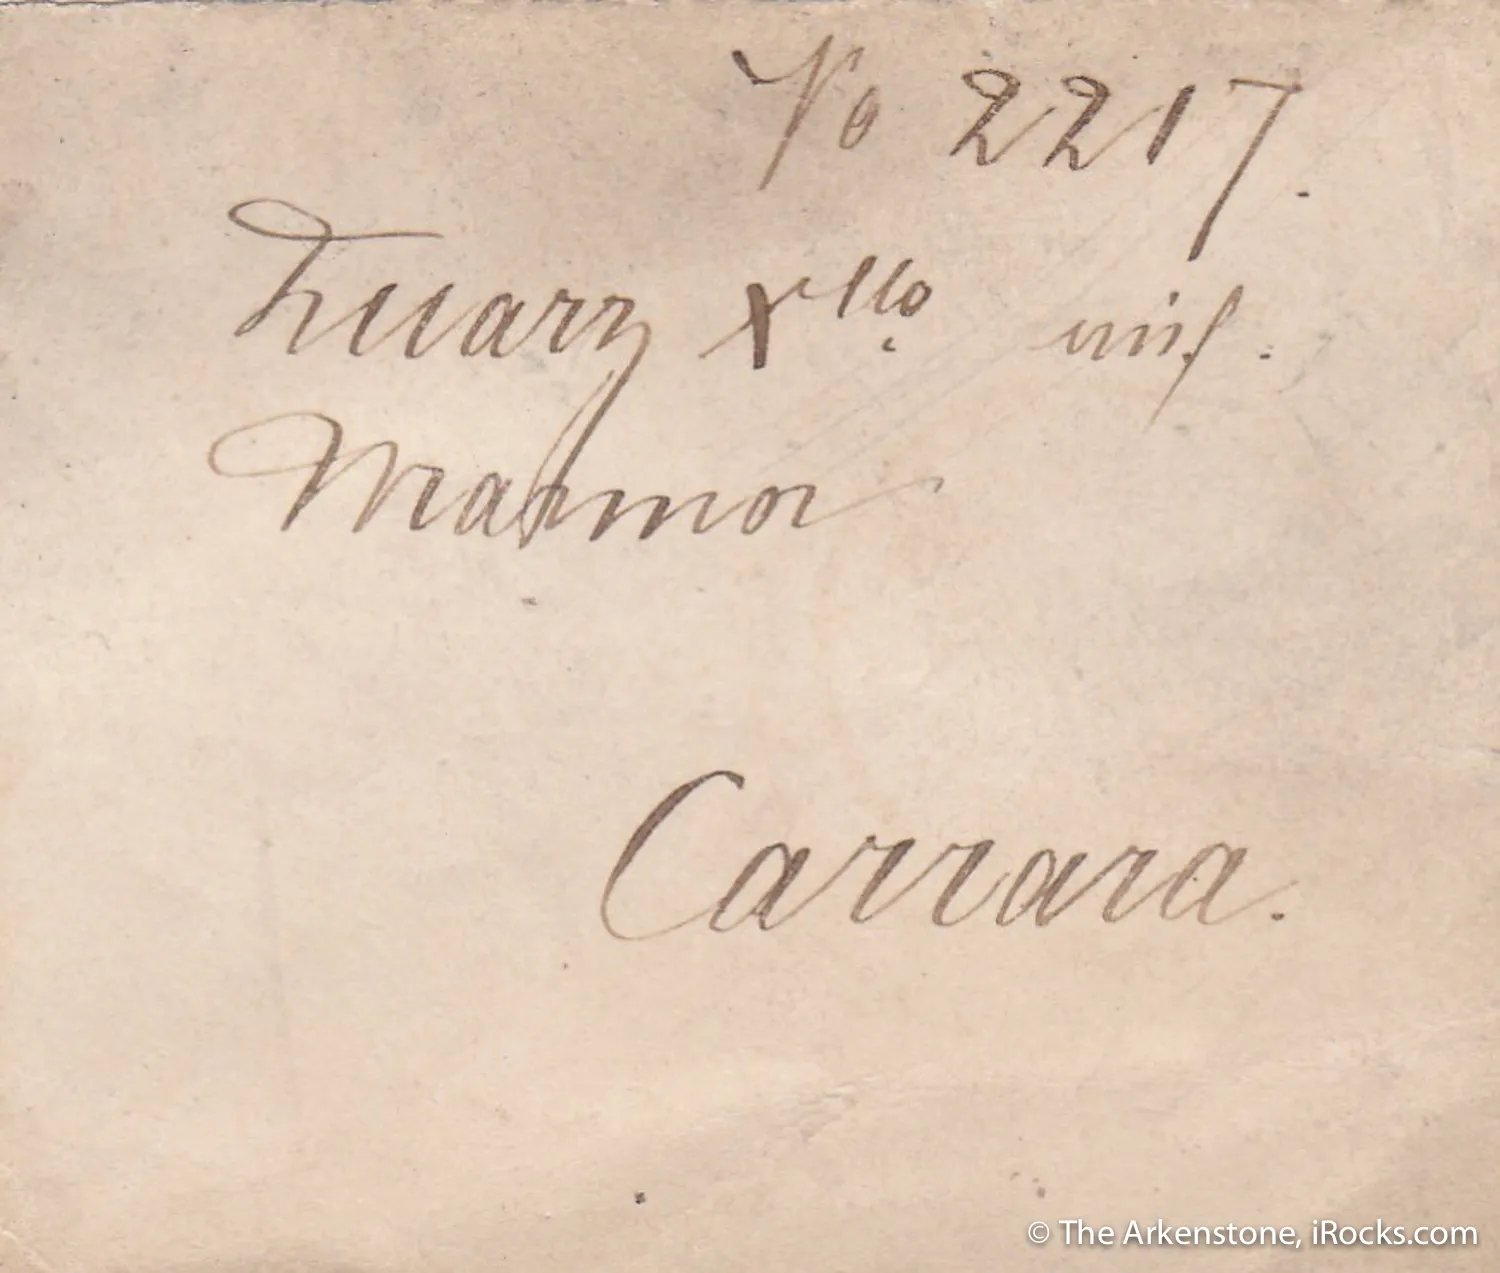 No 2217.
Quarz Xllo. auf.
Marmor
Carrara.
© The Arkenstone, iRocks.com